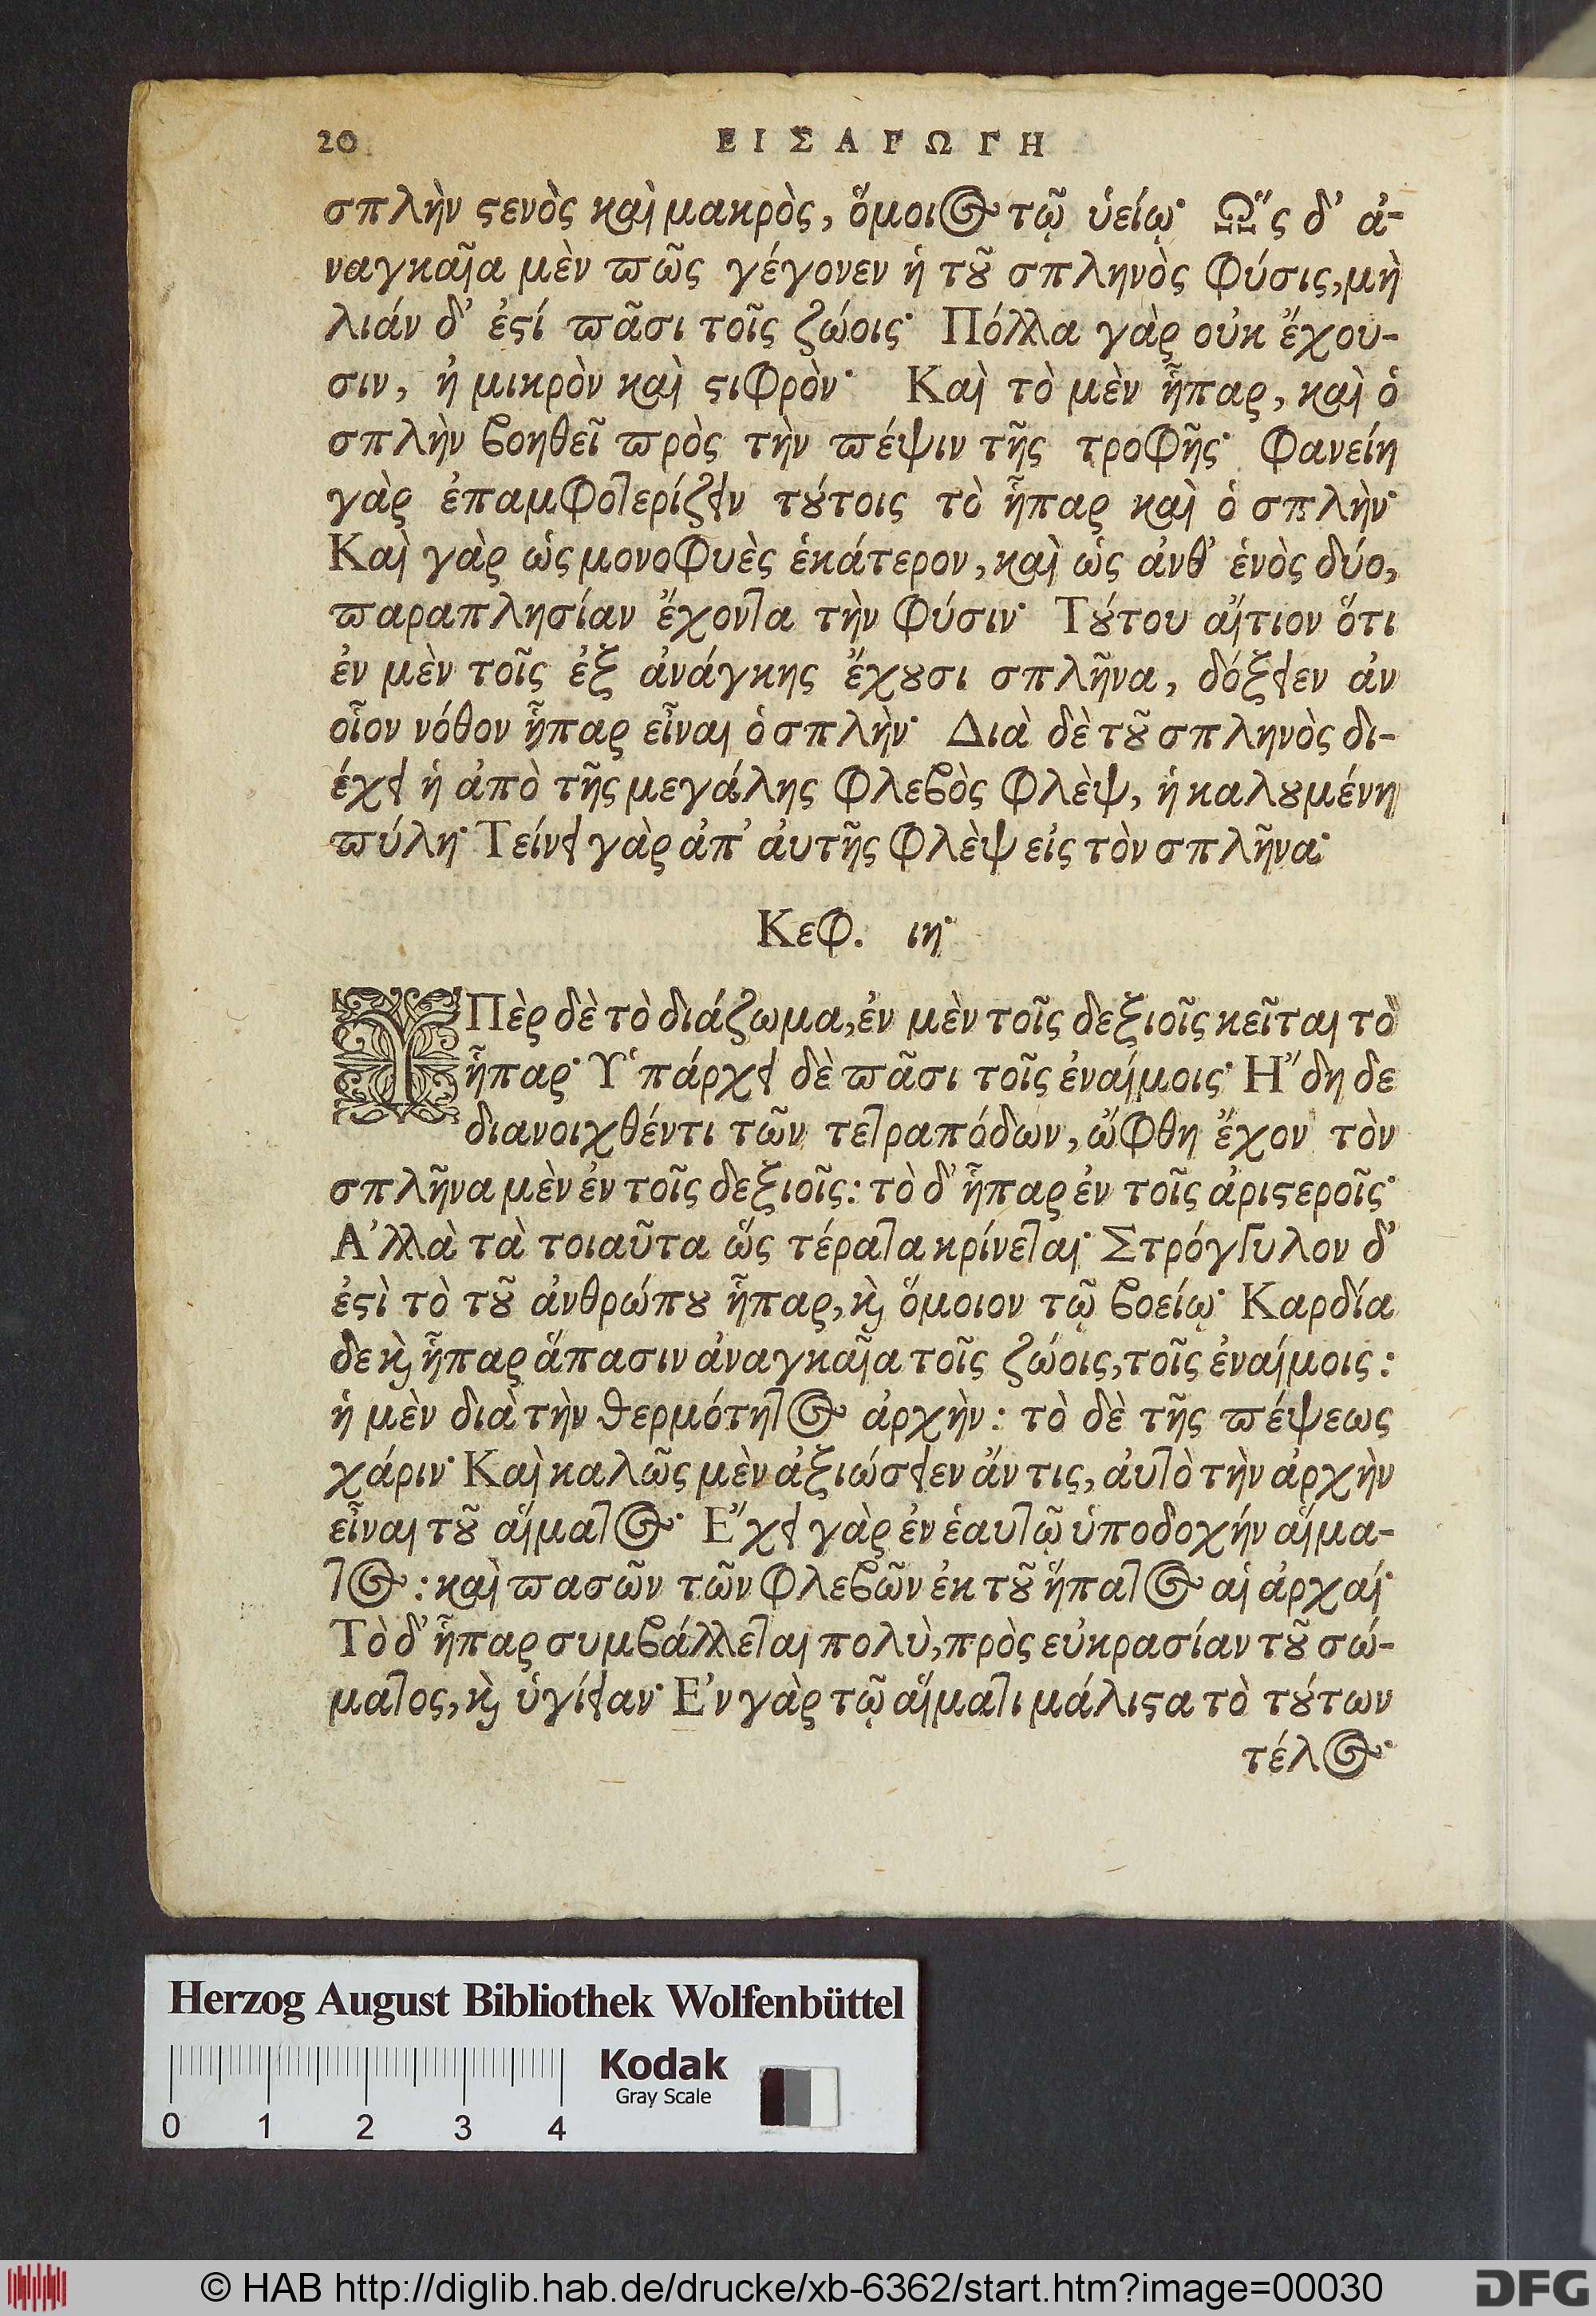 20 ΕΙΣΑΓΩΓΗ
σπλὴν ϛενὸς καὶ μακρὸς, ὅμοιος τῷ ὑείῳ· Ὥς δ’ ἀ-
ναγκαῖα μὲν πῶς γέγονεν ἡ τȣ͂ σπληνὸς φύσις, μὴ
λιάν δ’ ἐϛί πᾶσι τοῖς ζώοις· Πόλλα γὰρ οὐκ ἔχου-
σιν, ἠ μικρὸν καὶ ϛιφρὸν· Καὶ τὸ μὲν ἧπαρ, καὶ ὁ
σπλὴν βοηθεῖ πρὸς τὴν πέψιν τῆς τροφῆς· Φανείη
γὰρ ἐπαμφοτερίζειν τȣ́τοις τὸ ἧπαρ καὶ ὁ σπλὴν·
Καὶ γὰρ ὡς μονοφυὲς ἑκάτερον, καὶ ὡς ἀνθ’ ἑνὸς δύο,
παραπλησίαν ἔχοντα τὴν φύσιν· Τȣ́του αἴτιον ὅτι
ἐν μὲν τοῖς ἐξ ἀνάγκης ἔχȣσι σπλῆνα, δόξειεν ἀν
οἷον νόθον ἧπαρ εἶναι ὁ σπλὴν· Διὰ δὲ τȣ͂ σπληνὸς δι-
έχει ἡ ἀπὸ τῆς μεγάλης φλεβὸς φλὲψ, ἡ καλȣμένη
πύλη· Τείνει γὰρ ἀπ’ ἀυτῆς φλὲψ εἰς τὸν σπλῆνα·
Κεφ. ιη·
ΥΠὲρ δὲ τὸ διάζωμα, ἐν μὲν τοῖς δεξιοῖς κεῖται τὸ
ἧπαρ· Ὑπάρχει δὲ πᾶσι τοῖς ἐναίμοις· Ἤδη δε
διανοιχθέντι τῶν τετραπόδων, ὤφθη ἔχον τὸν
σπλῆνα μὲν ἐν τοῖς δεξιοῖς: τὸ δ’ ἧπαρ ἐν τοῖς ἀριϛεροῖς·
Ἀλλὰ τὰ τοιαῦτα ὥς τέρατα κρίνεται· Στρόγγυλον δ’
ἐϛὶ τὸ τȣ͂ ἀνθρώπȣ ἧπαρ, ϗ̀ ὅμοιον τῷ βοείῳ· Καρδία
δε ϗ̀ ἧπαρ ἅπασιν ἀναγκαῖα τοῖς ζώοις, τοῖς ἐναίμοις:
ἡ μὲν διὰ τὴν θερμότητος ἀρχὴν: τὸ δὲ τῆς πέψεως
χάριν· Καὶ καλῶς μὲν ἀξιώσειεν ἄν τις, ἀυτὸ τὴν ἀρχὴν
εἶναι τȣ͂ αἵματος· Ἔχει γὰρ ἐν ἑαυτῷ ὑποδοχήν αἵμα-
τος: καὶ πασῶν τῶν φλεβῶν ἐκ τȣ͂ ἥπατος αἱ ἀρχαί·
Τὸ δ’ ἧπαρ συμβάλλεται πολὺ, πρὸς εὐκρασίαν τȣ͂ σώ-
ματος, ϗ̀ ὑγίειαν· Ἐν γὰρ τῷ αἵματι μάλιϛα τὸ τȣ́των
τέλος·
Herzog August Bibliothek Wolfenbüttel
Kodak
Gray Scale
0 1 2 3 4
© HAB http://diglib.hab.de/drucke/xb-6362/start.htm?image=00030
DFG